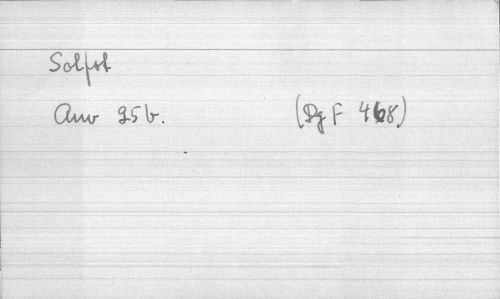 Solpot
Anv 25b. (Dg F 468)